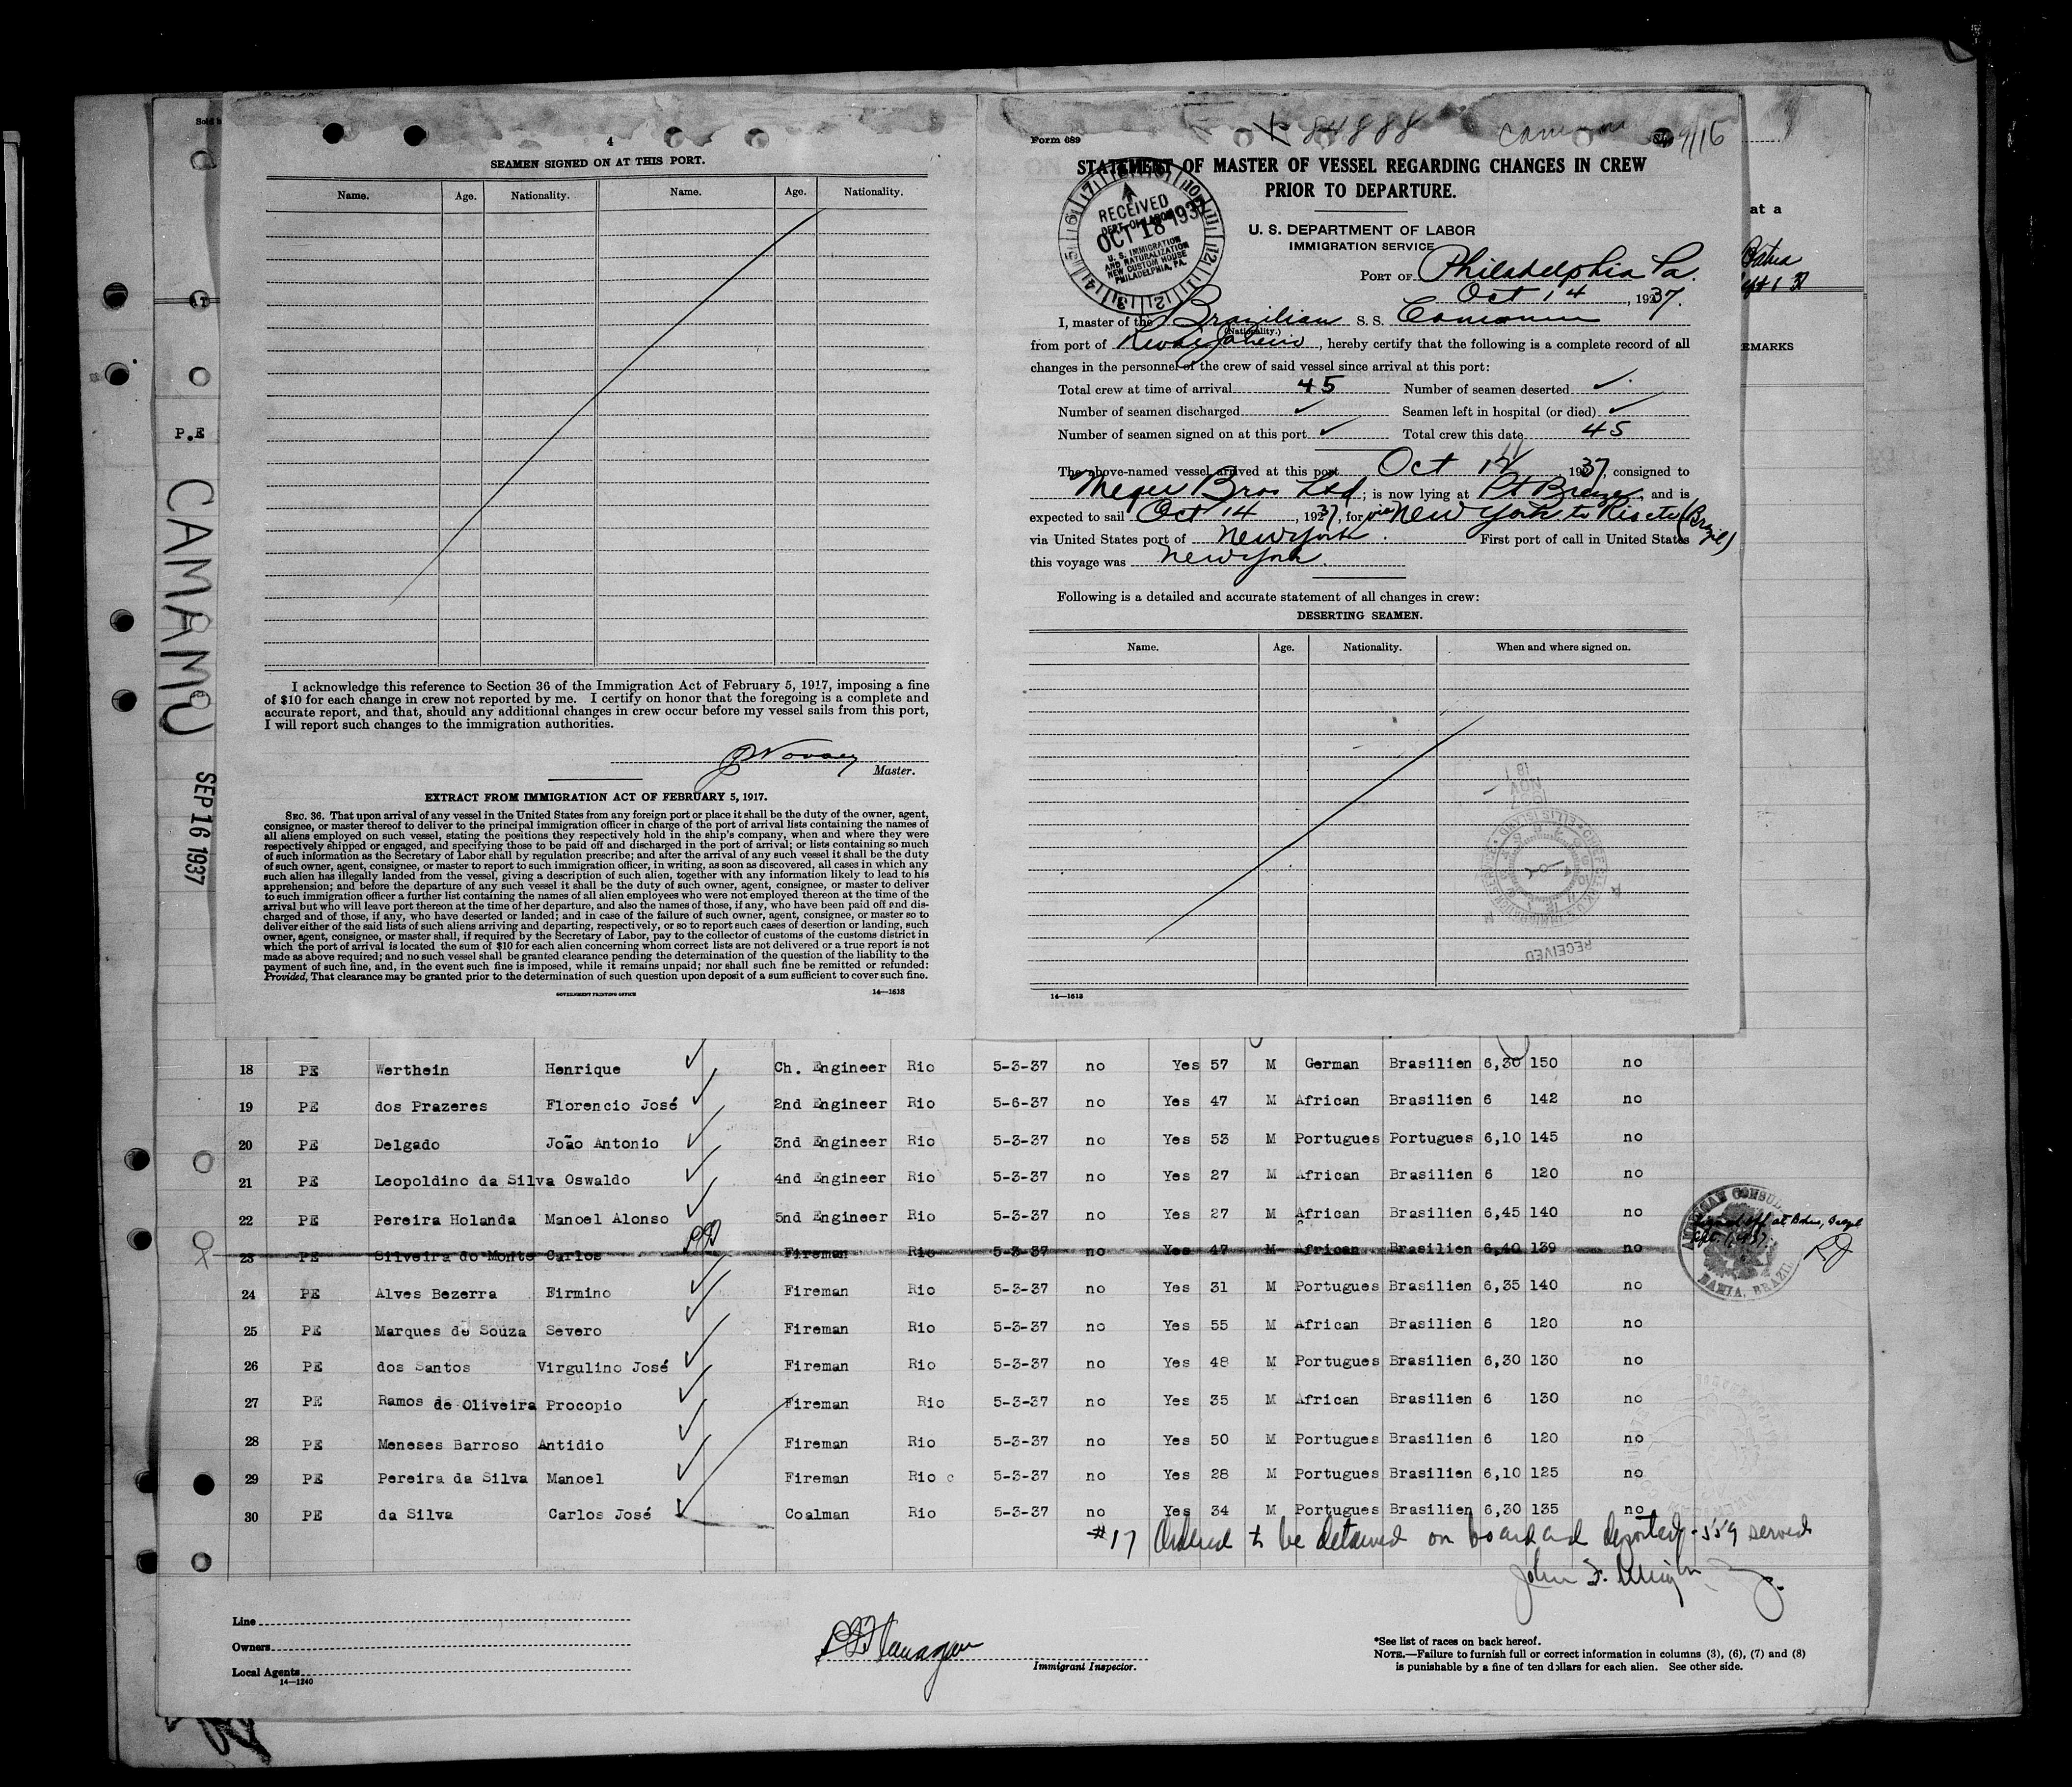 Sold
4
SEAMEN SIGNED ON AT THIS PORT.
Name. Age. Nationality. Name. Age. Nationality.
I acknowledge this reference to Section 36 of the Immigration Act of February 5, 1917, imposing a fine
of $10 for each change in crew not reported by me. I certify on honor that the foregoing is a complete and
accurate report, and that, should any additional changes in crew occur before my vessel sails from this port,
I will report such changes to the immigration authorities.
Master.
EXTRACT FROM IMMIGRATION ACT OF FEBRUARY 5, 1917.
SEC. 36. That upon arrival of any vessel in the United States from any foreign port or place it shall be the duty of the owner, agent,
consignee, or master thereof to deliver to the principal immigration officer in charge of the port of arrival lists containing the names of
all aliens employed on such vessel, stating the positions they respectively hold in the ship's company, when and where they were
respectively shipped or engaged, and specifying those to be paid off and discharged in the port of arrival; or lists containing so much
of such information as the Secretary of Labor shall by regulation prescribe; and after the arrival of any such vessel it shall be the duty
of such owner, agent, consignee, or master to report to such immigration officer, in writing, as soon as discovered, all cases in which any
such alien has illegally landed from the vessel, giving a description of such alien, together with any information likely to lead to his
apprehension; and before the departure of any such vessel it shall be the duty of such owner, agent, consignee, or master to deliver
to such immigration officer a further list containing the names of all alien employees who were not employed thereon at the time of the
arrival but who will leave port thereon at the time of her departure, and also the names of those, if any, who have been paid off and dis-
charged and of those, if any, who have deserted or landed; and in case of the failure of such owner, agent, consignee, or master so to
deliver either of the said lists of such aliens arriving and departing, respectively, or so to report such cases of desertion or landing, such
owner, agent, consignee, or master shall, if required by the Secretary of Labor, pay to the collector of customs of the customs district in
which the port of arrival is located the sum of $10 for each alien concerning whom correct lists are not delivered or a true report is not
made as above required; and no such vessel shall be granted clearance pending the determination of the question of the liability to the
payment of such fine, and, in the event such fine is imposed, while it remains unpaid; nor shall such fine be remitted or refunded:
Provided, That clearance may be granted prior to the determination of such question upon deposit of a sum sufficient to cover such fine.
GOVERNMENT PRINTING OFFICE 14—1613
P.E
CAMAMU
SEP 16 1937
Form 689 84888 9/16
STATEMENT OF MASTER OF VESSEL REGARDING CHANGES IN CREW
PRIOR TO DEPARTURE.
RECEIVED
DEPT. OF LABOR
OCT 18 1937
U. S. IMMIGRATION
AND NATURALIZATION
NEW CUSTOM HOUSE
PHILADELPHIA, PA.
U. S. DEPARTMENT OF LABOR
IMMIGRATION SERVICE
PORT OF Philadelphia Pa.
Oct 14, 1937.
I, master of the Brazilian S. S. Camamu
(Nationality.)
from port of Rio de Janeiro, hereby certify that the following is a complete record of all
changes in the personnel of the crew of said vessel since arrival at this port:
Total crew at time of arrival 45 Number of seamen deserted ✓
Number of seamen discharged ✓ Seamen left in hospital (or died) ✓
Number of seamen signed on at this port ✓ Total crew this date 45
The above-named vessel arrived at this port Oct 12, 1937, consigned to
Bros Ltd; is now lying at Pt Breeze, and is
expected to sail Oct 14, 1937, for via New York to Rio etc (Brazil)
via United States port of New York. First port of call in United States
this voyage was New York.
Following is a detailed and accurate statement of all changes in crew:
DESERTING SEAMEN.
Name. Age. Nationality. When and where signed on.
RECEIVED
14—1613
at a
Bahia
EMARKS
18 PE Werthein Henrique Ch. Engineer Rio 5-3-37 no Yes 57 M German Brasilien 6,30 150 no
19 PE dos Prazeres Florencio José 2nd Engineer Rio 5-6-37 no Yes 47 M African Brasilien 6 142 no
20 PE Delgado João Antonio 3nd Engineer Rio 5-3-37 no Yes 53 M Portugues Portugues 6,10 145 no
21 PE Leopoldino da Silva Oswaldo 4nd Engineer Rio 5-3-37 no Yes 27 M African Brasilien 6 120 no
22 PE Pereira Holanda Manoel Alonso 5nd Engineer Rio 5-3-37 no Yes 27 M African Brasilien 6,45 140 no
23 PE Silveira do Monte Carlos Fireman Rio 5-3-37 no Yes 47 M African Brasilien 6,40 139 no
AMERICAN CONSUL
BAHIA, BRAZIL
Signed off at Bahia, Brazil
24 PE Alves Bezerra Firmino Fireman Rio 5-3-37 no Yes 31 M Portugues Brasilien 6,35 140 no
25 PE Marques de Souza Severo Fireman Rio 5-3-37 no Yes 55 M African Brasilien 6 120 no
26 PE dos Santos Virgulino José Fireman Rio 5-3-37 no Yes 48 M Portugues Brasilien 6,30 130 no
27 PE Ramos de Oliveira Procopio Fireman Rio 5-3-37 no Yes 35 M African Brasilien 6 130 no
28 PE Meneses Barroso Antidio Fireman Rio 5-3-37 no Yes 50 M Portugues Brasilien 6 120 no
29 PE Pereira da Silva Manoel Fireman Rio 5-3-37 no Yes 28 M Portugues Brasilien 6,10 125 no
30 PE da Silva Carlos José Coalman Rio 5-3-37 no Yes 34 M Portugues Brasilien 6,30 135 no
#17 Ordered to be detained on board and deported - 559 served
John F.
Line
Owners
Local Agents
14—1240
Immigrant Inspector.
*See list of races on back hereof.
NOTE.—Failure to furnish full or correct information in columns (3), (6), (7) and (8)
is punishable by a fine of ten dollars for each alien. See other side.